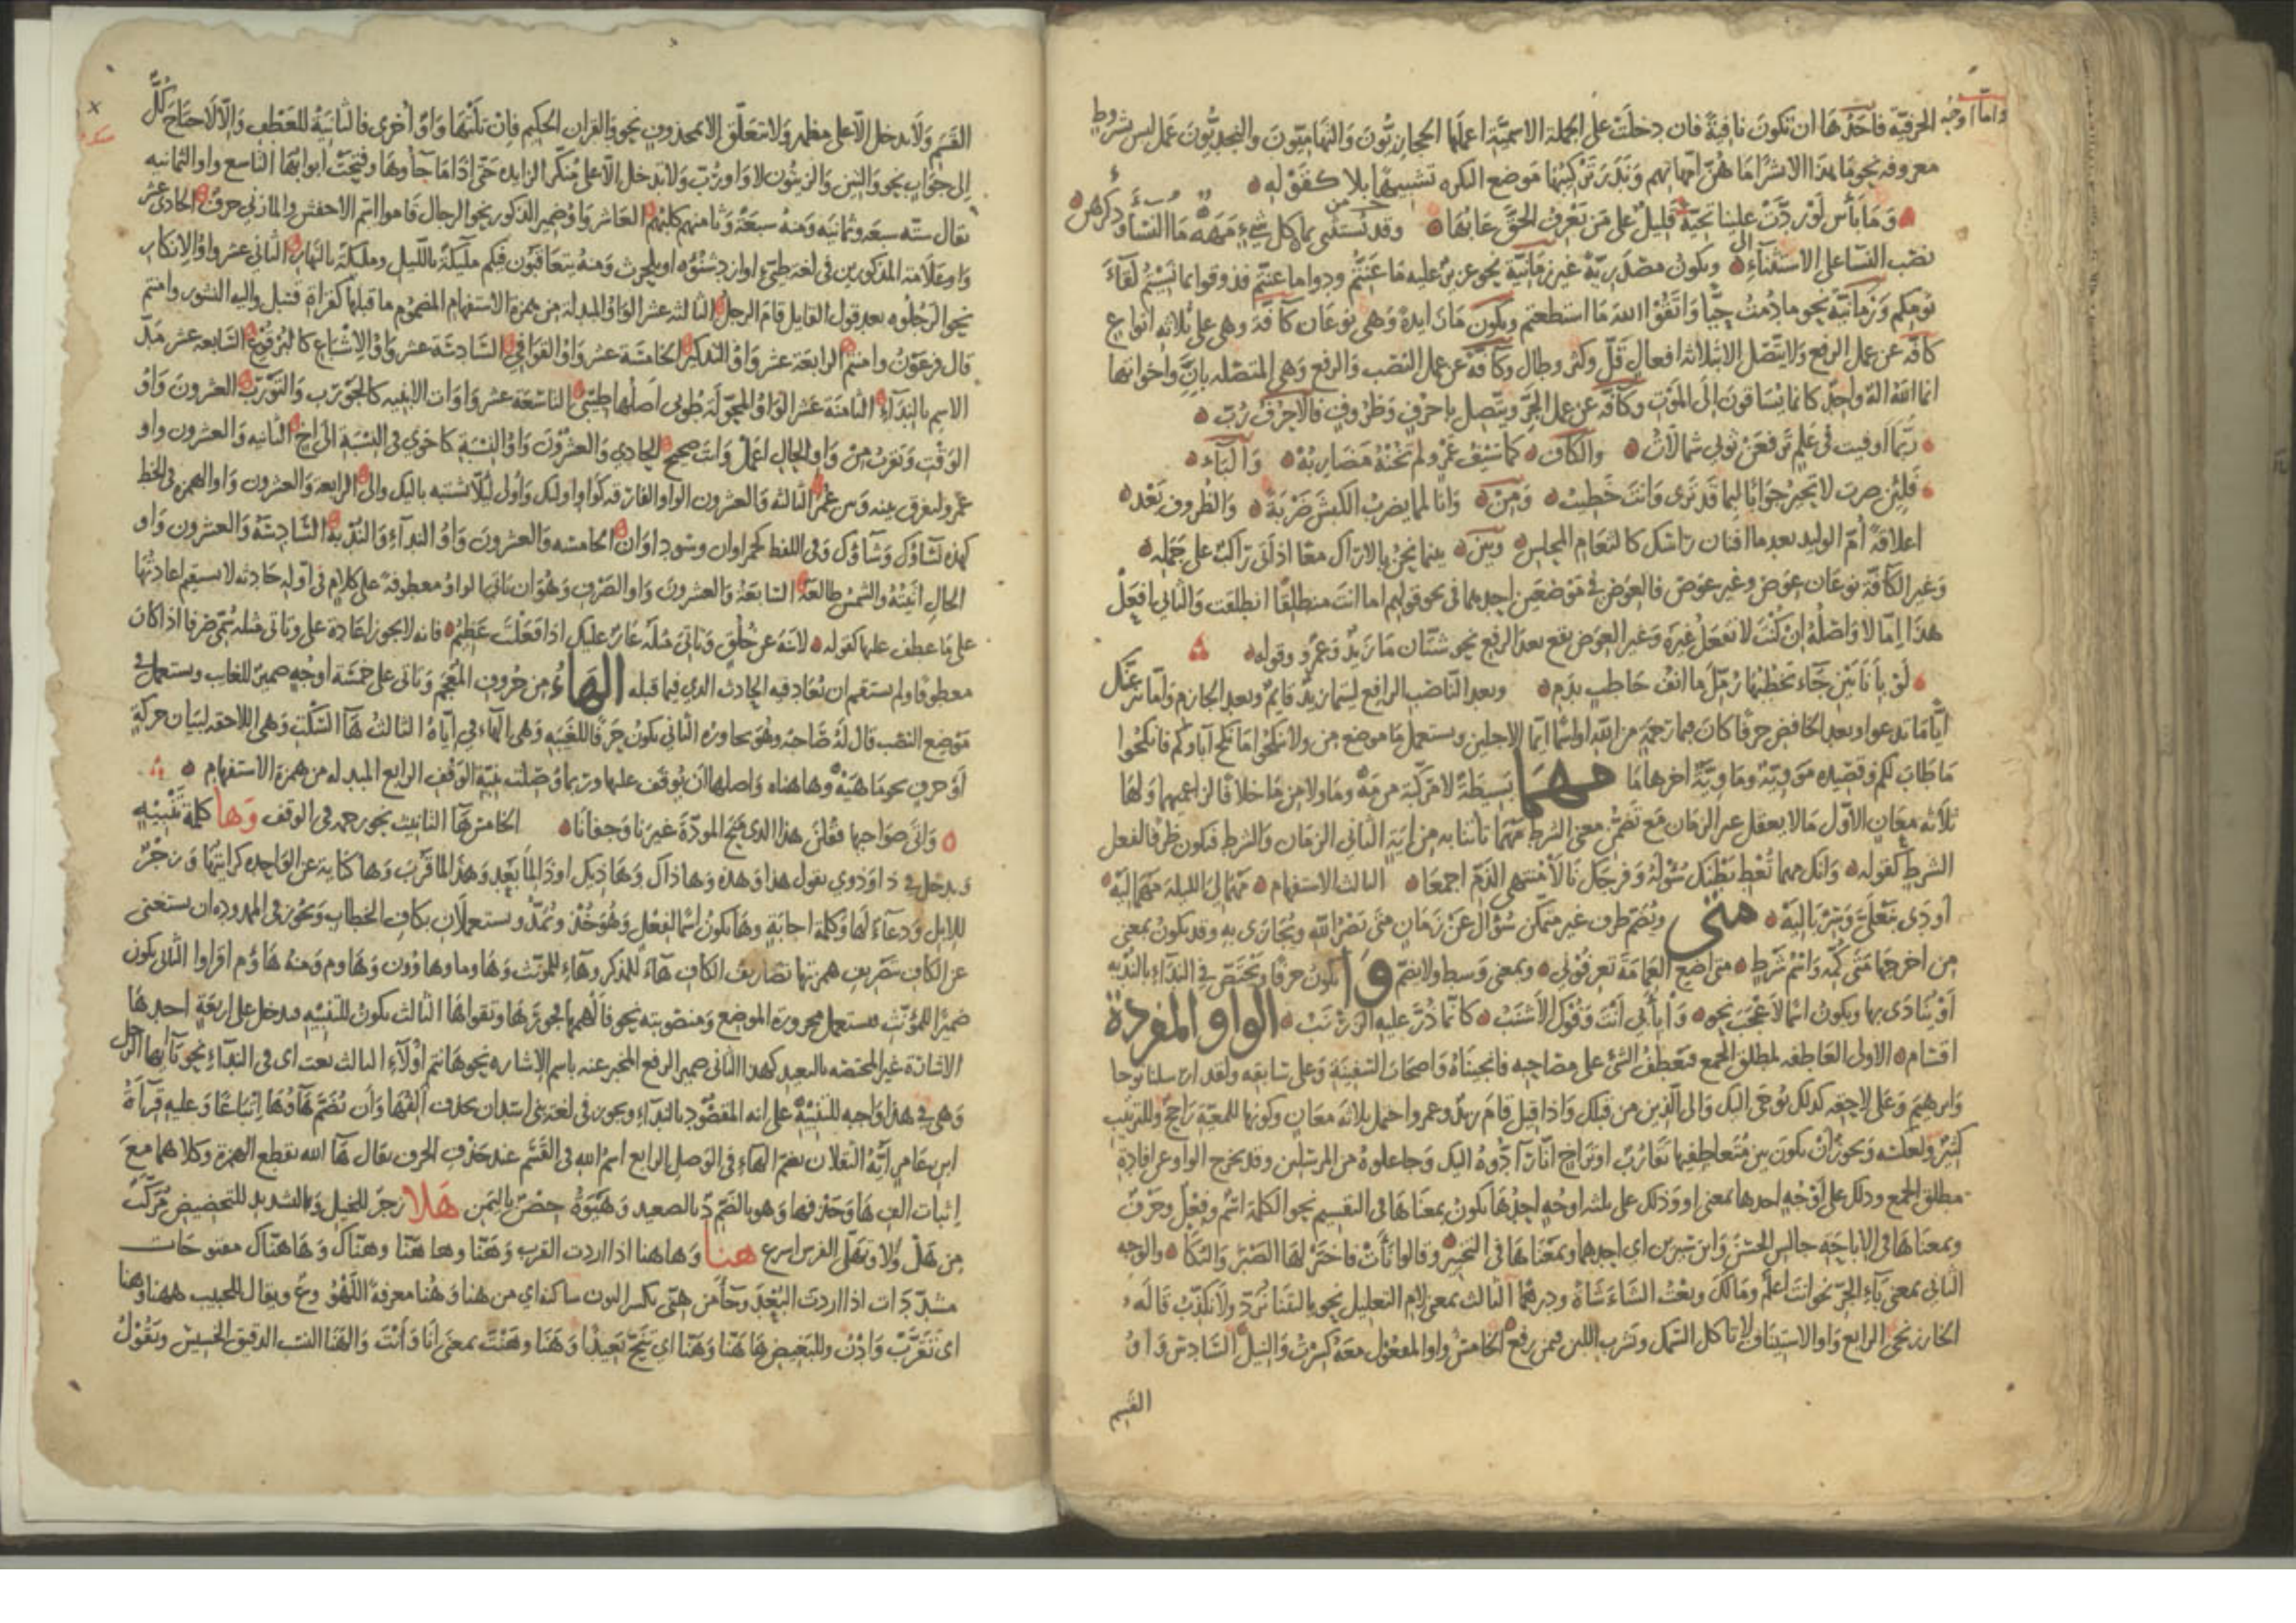 واما اوجه الحرفية فاحدها ان تكون نافية فان دخلت على الجملة الاسمية اعملها الحجازيون والتهاميون والنجديون عمل ليس بشروط
معروفة نحو ما هذا بشرا ما هن امهاتهم وندر تركيبها مع النكرة تشبيها بلا كقوله
وما بأس لو ردت علينا تحية قليل على من يعرف الحق عابها وقد يستثنى بما كل شيء مهه ما النساء وذكرهن
نصب النساء على الاستثناء وتكون مصدرية غير زمانية نحو عزيز عليه ما عنتم ودوا ما عنتم فذوقوا بما نسيتم لقاء
يومكم وزمانية نحو ما دمت حيا واتقوا الله ما استطعتم وتكون ما زايدة وهي نوعان كافة وهي على ثلاثه انواع
كافه عن عمل الرفع ولا يتصل الا بثلاثه افعال قل وكثر وطال وكافة عن عمل النصب والرفع وهي المتصله بان واخواتها
انما الله اله واحد كانما يساقون الى الموت وكافة عن عمل الجر ويتصل باحرف وظروف فالاحرف رب
ربما اوفيت في علم ترفعن ثوبي شمالات والكاف كما سيف عمرو لم تخنه مضاربه والباء
فلئن صرت لا تحير جوابا لبما قد ترى وانت خطيب ومن وانا لمما يضرب الكبش ضربة والظروف بعد
اعلاقة ام الوليد بعدما افنان راسك كالثغام المجلس وبين بينما نحن بالاراك معا اذ اتى راكب على جمله
وغير الكافة نوعان عوض وغير عوض فالعوض في موضعين احدهما في نحو قولهم اما انت منطلقا انطلقت والثاني افعل
هذا اما لا واصله ان كنت لا تفعل غيره وغير العوض يقع بعد الرفع نحو شتان ما زيد وعمرو وقوله
لو بأبانين جاء يخطبها زمل ما انف خاطب بدم وبعد الناصب الرافع ليتما زيد قايم وبعد الجازم واما ينزغنك
اياما تدعوا وبعد الخافض حرفا كان فبما رحمة من الله او اسما ايما الاجلين ويستعمل ما موضع من ولا تنكحوا ما نكح آباوكم فانكحوا
ما طاب لكم وقصيده موويه وماوية آخرها ما مهما بسيطة لا مركبة من مه وما ولا من ما خلافا لزاعميهما ولها
ثلاثه معان الاول ما لا يعقل غير الزمان مع تضمن معنى الشرط مهما تأتنا به من اية الثاني الزمان والشرط فتكون ظرفا لفعل
الشرط كقوله وانك مهما تعط بطنك سؤله وفرجك نالا منتهى الذم اجمعا الثالث الاستفهام مهما لي الليلة مهما ليه
اودى بنعلي وسرباليه متى وتضم ظرف غير متمكن سؤال عن زمان متى نصر الله ويجازى به وقد يكون بمعنى
من اخرجها متى كمه واسم شرط متى اضع العمامة تعرفوني وبمعنى وسط ولا تضم وا تكون حرفا وتختص في النداء بالندبه
او ينادى بها ويكون اسما لاعجب نحو وا بأبي انت وفوك الاشنب كانما ذر عليه الزرنب الواو المفردة
اقسام الاولى العاطفه لمطلق الجمع فتعطف الشئ على مصاحبه فانجيناه واصحاب السفينة وعلى سابقه ولقد ارسلنا نوحا
وابرهيم وعلى لاحقه كذلك يوحى اليك والى الذين من قبلك واذا قيل قام زيد وعمرو احتمل ثلاثة معان وكونها للمعية راجح وللترتيب
كثير ولعكسه ويجوز ان يكون بين متعاطفيها تقارب او تراخ انا رآدوه اليك وجاعلوه من المرسلين وقد يخرج الواو عن افادة
مطلق الجمع وذلك على اوجه احدها بمعنى او وذلك على ثلثه اوجه احدها يكون بمعناها في التقسيم نحو الكلمة اسم وفعل وحرف
وبمعناها في الاباحة جالس الحسن وابن سيرين اي احدهما وبمعناها في التخيير وقالوا نأت فاختر لها الصبر والبكا والوجه
الثاني بمعنى باء الجر نحو انت اعلم ومالك وبعت الشاء شاة ودرهما الثالث بمعنى لام التعليل نحو ياليتنا نرد ولا نكذب قاله
الخارزنجي الرابع واو الاستيناف لا تاكل السمك وتشرب اللبن فيمن رفع الخامس واو المفعول معه كسرت والنيل السادس واو
القسم
القسم ولا تدخل الا على مظهر ولا تتعلق الا بمحذوف نحو والقران الحكيم فان تلتها واو أخرى فالثانية للعطف والا لاحتاج كل
الى جواب نحو والتين والزيتون لا واو رب ولا تدخل الا على منكر الزايده حتى اذا ما جآوها وفتحت ابوابها التاسع واو الثمانيه
يقال سته سبعه وثمانيه ومنه سبعة وثامنهم كلبهم العاشر واو ضمير الذكور نحو الرجال قاموا اسم الاخفش والمازني حرف الحادي عشر
واو علامة المذكورين في لغة طيئ او ازد شنؤه او بلحرث ومنه يتعاقبون فيكم مليكة بالليل ومليكة بالنهار الثاني عشر واو الانكار
نحو الرجلوه بعد قول القايل قام الرجل الثالثه عشر الواو المبدلة من همزة الاستفهام المضموم ما قبلها كقراة قنبل واليه النشور وامنتم
قال فرعون وامنتم الرابعة عشر واو التذكير الخامسة عشر واو القوافي السادسة عشر واو الاشباع كالبرقوع السابعة عشر مد
الاسم بالنداء الثامنة عشر الواو المحولة طوبى اصلها طيبى التاسعة عشر واوات الابنيه كالجورب والتورب العشرون واو
الوقت وتقرب من واو الحال اعمل وانت صحيح الحادي والعشرون واو النسبة كاخوي في النسبة الى اخ الثانيه والعشرون واو
عمرو لتفرق بينه وبين عمر الثالثه والعشرون الواو الفارقه كواو اولئك واولي لئلا تشتبه باليك والى الرابعة والعشرون واو الهمزه في الخط
كهذه نساؤك وشآؤك وفي اللفظ كحمراوان وسوداوان الخامسه والعشرون واو النداء والندبة السادسة والعشرون واو
الحال اتيته والشمس طالعة السابعة والعشرون واو الصرف وهو ان تاتي الواو معطوفة على كلام في اوله حادثه لا يستقيم اعادتها
على ما عطف عليها كقوله لا تنه عن خلق وتاتي مثله عار عليك اذا فعلت عظيم فانه لا يجوز اعادة على وتاتي مثله سمي صرفا اذ كان
معطوفا ولم يستقم ان تعاد فيه الحادث الذي فيما قبله الهاء من حروف المعجم وتاتي على خمسة اوجه ضمير للغايب ويستعمل في
موضع النصب قال له صاحبه وهو يحاوره الثاني تكون حرفا للغيبة وهي الهاء في اياه الثالث هآ السكت وهي اللاحقه لبيان حركة
او حرف نحو ماهيه وهاهناه واصلها ان يوقف عليها وربما وصلت بنية الوقف الرابع المبدله من همزة الاستفهام
وأتى صواحبها فقلن هذا الذي منح المودة غيرنا وجفانا الخامس هآ التانيث نحو رحمه في الوقف وها كلمة تنبيه
وتدخل في ذا وذوي تقول هذا وهذه وهاذاك وهاذيك او ذا لما بعد وهذا لما قرب وها كناية عن الواحده كرايتها وزجر
للابل ودعاء لها وكلمة اجابة وها تكون اسما لفعل وهو خذ وتمد ويستعملان بكاف الخطاب ويجوز في الممدوده ان يستغنى
عن الكاف بتصريف همزتها تصاريف الكاف هاء للمذكر وهاء للمونث وهاوما وهاوون وهاوم ومنه هاؤم اقراوا الثاني يكون
ضميرا للمؤنث فتستعمل مجرورة الموضع ومنصوبته نحو فالهمها فجورها وتقواها الثالث تكون للتنبيه فتدخل على اربعة احدها
الاشارة غير المختصه بالبعيد كهذا الثاني ضمير الرفع المخبر عنه باسم الاشاره نحو هانتم اولآء الثالث نعت اي في النداء نحو يآ ايها الرجل
وهي في هذا واجبه للتنبيه على انه المقصود بالنداء ويجوز في لغة بني اسد ان تحذف الفها وان تضم هاؤها اتباعا وعليه قرآة
ابن عامر ايه الثقلان بضم الهاء في الوصل الرابع اسم الله في القسم عند حذف الحرف يقال هآ الله بقطع الهمزة وكلاهما مع
اثبات الف ها وحذفها وهو بالضم د بالصعيد وهيوة حصن باليمن هلا زجر للخيل وبالتشديد للتحضيض مركب
من هل ولا وتهلى الفرس اسرع هنا وهاهنا اذا اردت القرب وهنا وها هنا وهناك وهاهناك مفتوحات
مشددات اذا اردت البعد وجآء من هني بكسر النون ساكنه اي من هنا وهنا معرفة اللهو وع ويقال للحبيب ههنا وهنا
اي تقرب وادن وللبغيض ها هنا وهنا اي تنح بعيدا وهنا وهنت بمعنى انا وانت والهنا النسب الدقيق الخسيس وتقول